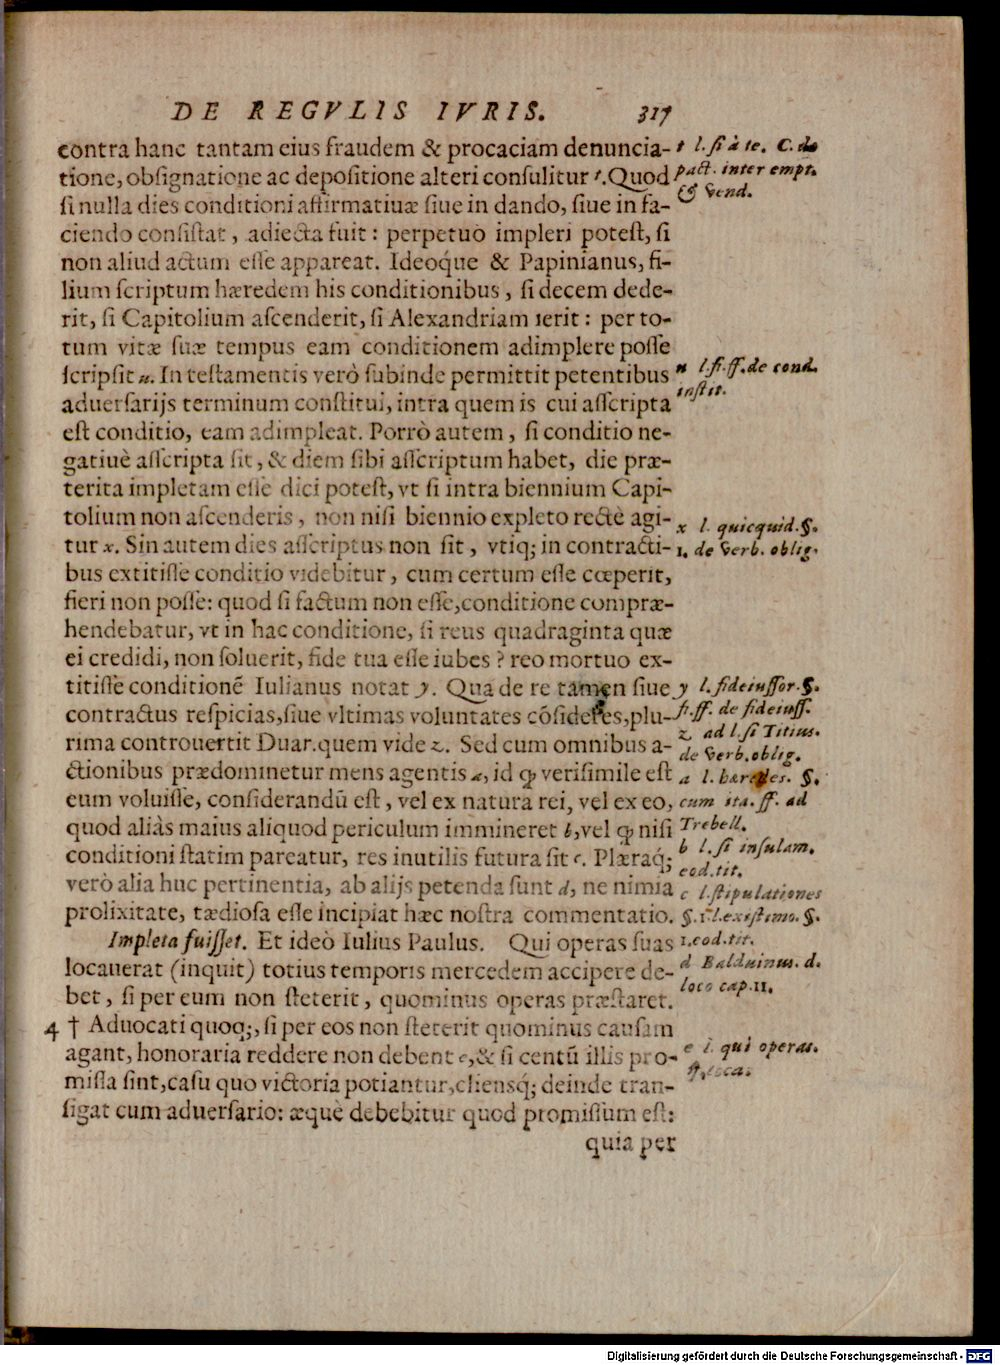 DE REGVLIS IVRIS. 317
contra hanc tantam eius fraudem & procaciam denuncia-
tione, obsignatione ac depositione alteri consulitur t. Quod
si nulla dies conditioni affirmatiuæ siue in dando, siue in fa-
ciendo consistat, adiecta fuit: perpetuò impleri potest, si
non aliud actum esse appareat. Ideoq́ue & Papinianus, fi-
lium scriptum hæredem his conditionibus, si decem dede-
rit, si Capitolium ascenderit, si Alexandriam ierit: per to-
tum vitæ suæ tempus eam conditionem adimplere posse
scripsit u. In testamentis verò subinde permittit petentibus
aduersarijs terminum constitui, intra quem is cui asscripta
est conditio, eam adimpleat. Porrò autem, si conditio ne-
gatiuè asscripta sit, & diem sibi asscriptum habet, die præ-
terita impletam esse dici potest, vt si intra biennium Capi-
tolium non ascenderis, non nisi biennio expleto rectè agi-
tur x. Sin autem dies asscriptus non sit, vtiq; in contracti-
bus extitisse conditio videbitur, cum certum esse cœperit,
fieri non posse: quod si factum non esse, conditione compræ-
hendebatur, vt in hac conditione, si reus quadraginta quæ
ei credidi, non soluerit, fide tua esse iubes? reo mortuo ex-
titisse conditionē Iulianus notat y. Qua de re tamen siue
contractus respicias, siue vltimas voluntates cōsideres, plu-
rima controuertit Duar. quem vide z. Sed cum omnibus a-
ctionibus prædominetur mens agentis a, id ꝙ verisimile est
eum voluisse, considerandū est, vel ex natura rei, vel ex eo,
quod aliàs maius aliquod periculum immineret b, vel ꝙ nisi
conditioni statim pareatur, res inutilis futura sit c. Plæraq́;
verò alia huc pertinentia, ab alijs petenda sunt d, ne nimia
prolixitate, tædiosa esse incipiat hæc nostra commentatio.
Impleta fuisset. Et ideò Iulius Paulus. Qui operas suas
locauerat (inquit) totius temporis mercedem accipere de-
bet, si per eum non steterit, quominus operas præstaret.
4 † Aduocati quoq;, si per eos non steterit quominus causam
agant, honoraria reddere non debent e, & si centū illis pro-
missa sint, casu quo victoria potiantur, cliensq́; deinde tran-
sigat cum aduersario: æquè debebitur quod promissum est:
quia per
t l. si à te. C. de
pact. inter empt.
& vend.
u l. fi. ff. de cond.
instit.
x l. quicquid. §.
1. de verb. oblig.
y l. fideiussor. §.
fi. ff. de fideiuss.
z ad l. si Titius.
de verb. oblig.
a l. hæredes. §.
cum ita. ff. ad
Trebell.
b l. si insulam.
eod. tit.
c l. stipulationes
§. 1. l. existimo. §.
1. eod. tit.
d Balduinus. d.
loco cap. 11.
e l. qui operas.
ff. loca.
Digitalisierung gefördert durch die Deutsche Forschungsgemeinschaft - DFG